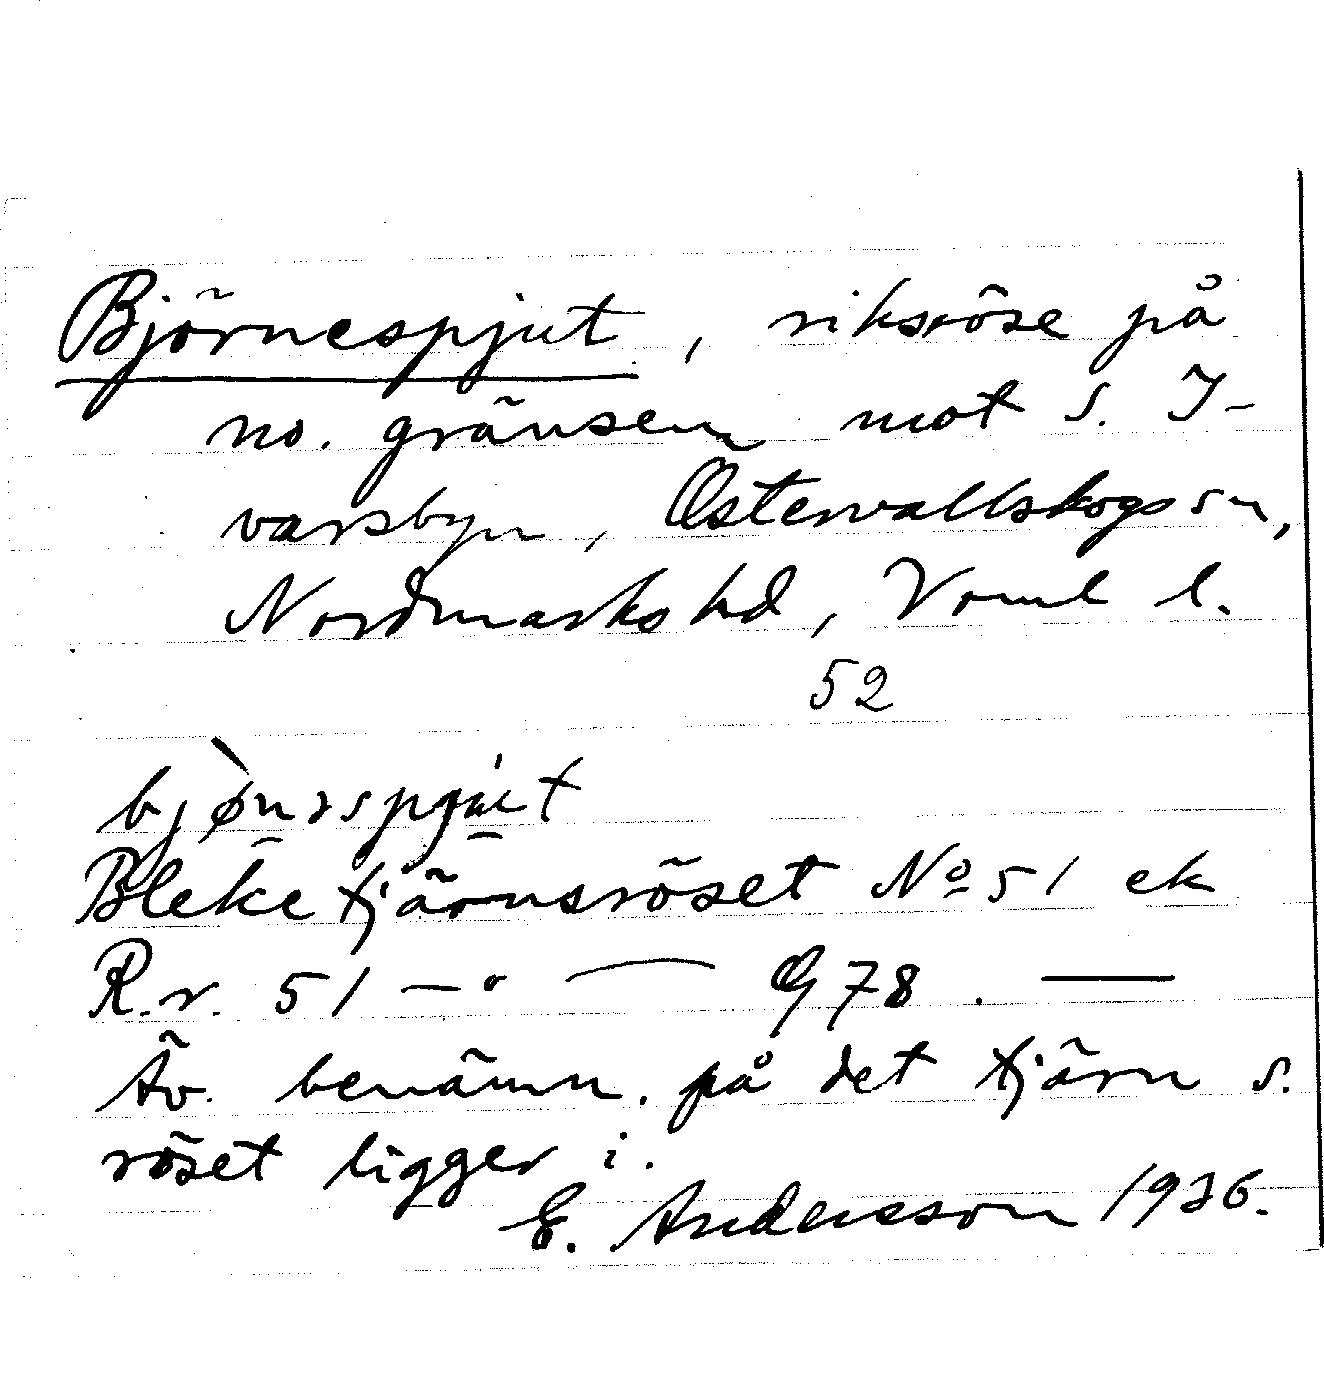 Björnespjut, riksröse på
no. gränsen mot s. I-
varsbyn, Östervallskogs sn,
Nordmarks hd, Vrml l.
52
Bleke tjärnsröset No 51 ek
R.r. 51 — " — G 78 . —
Äv. benämn. på det tjärn s.
röset ligger i.
E. Andersson 1936.